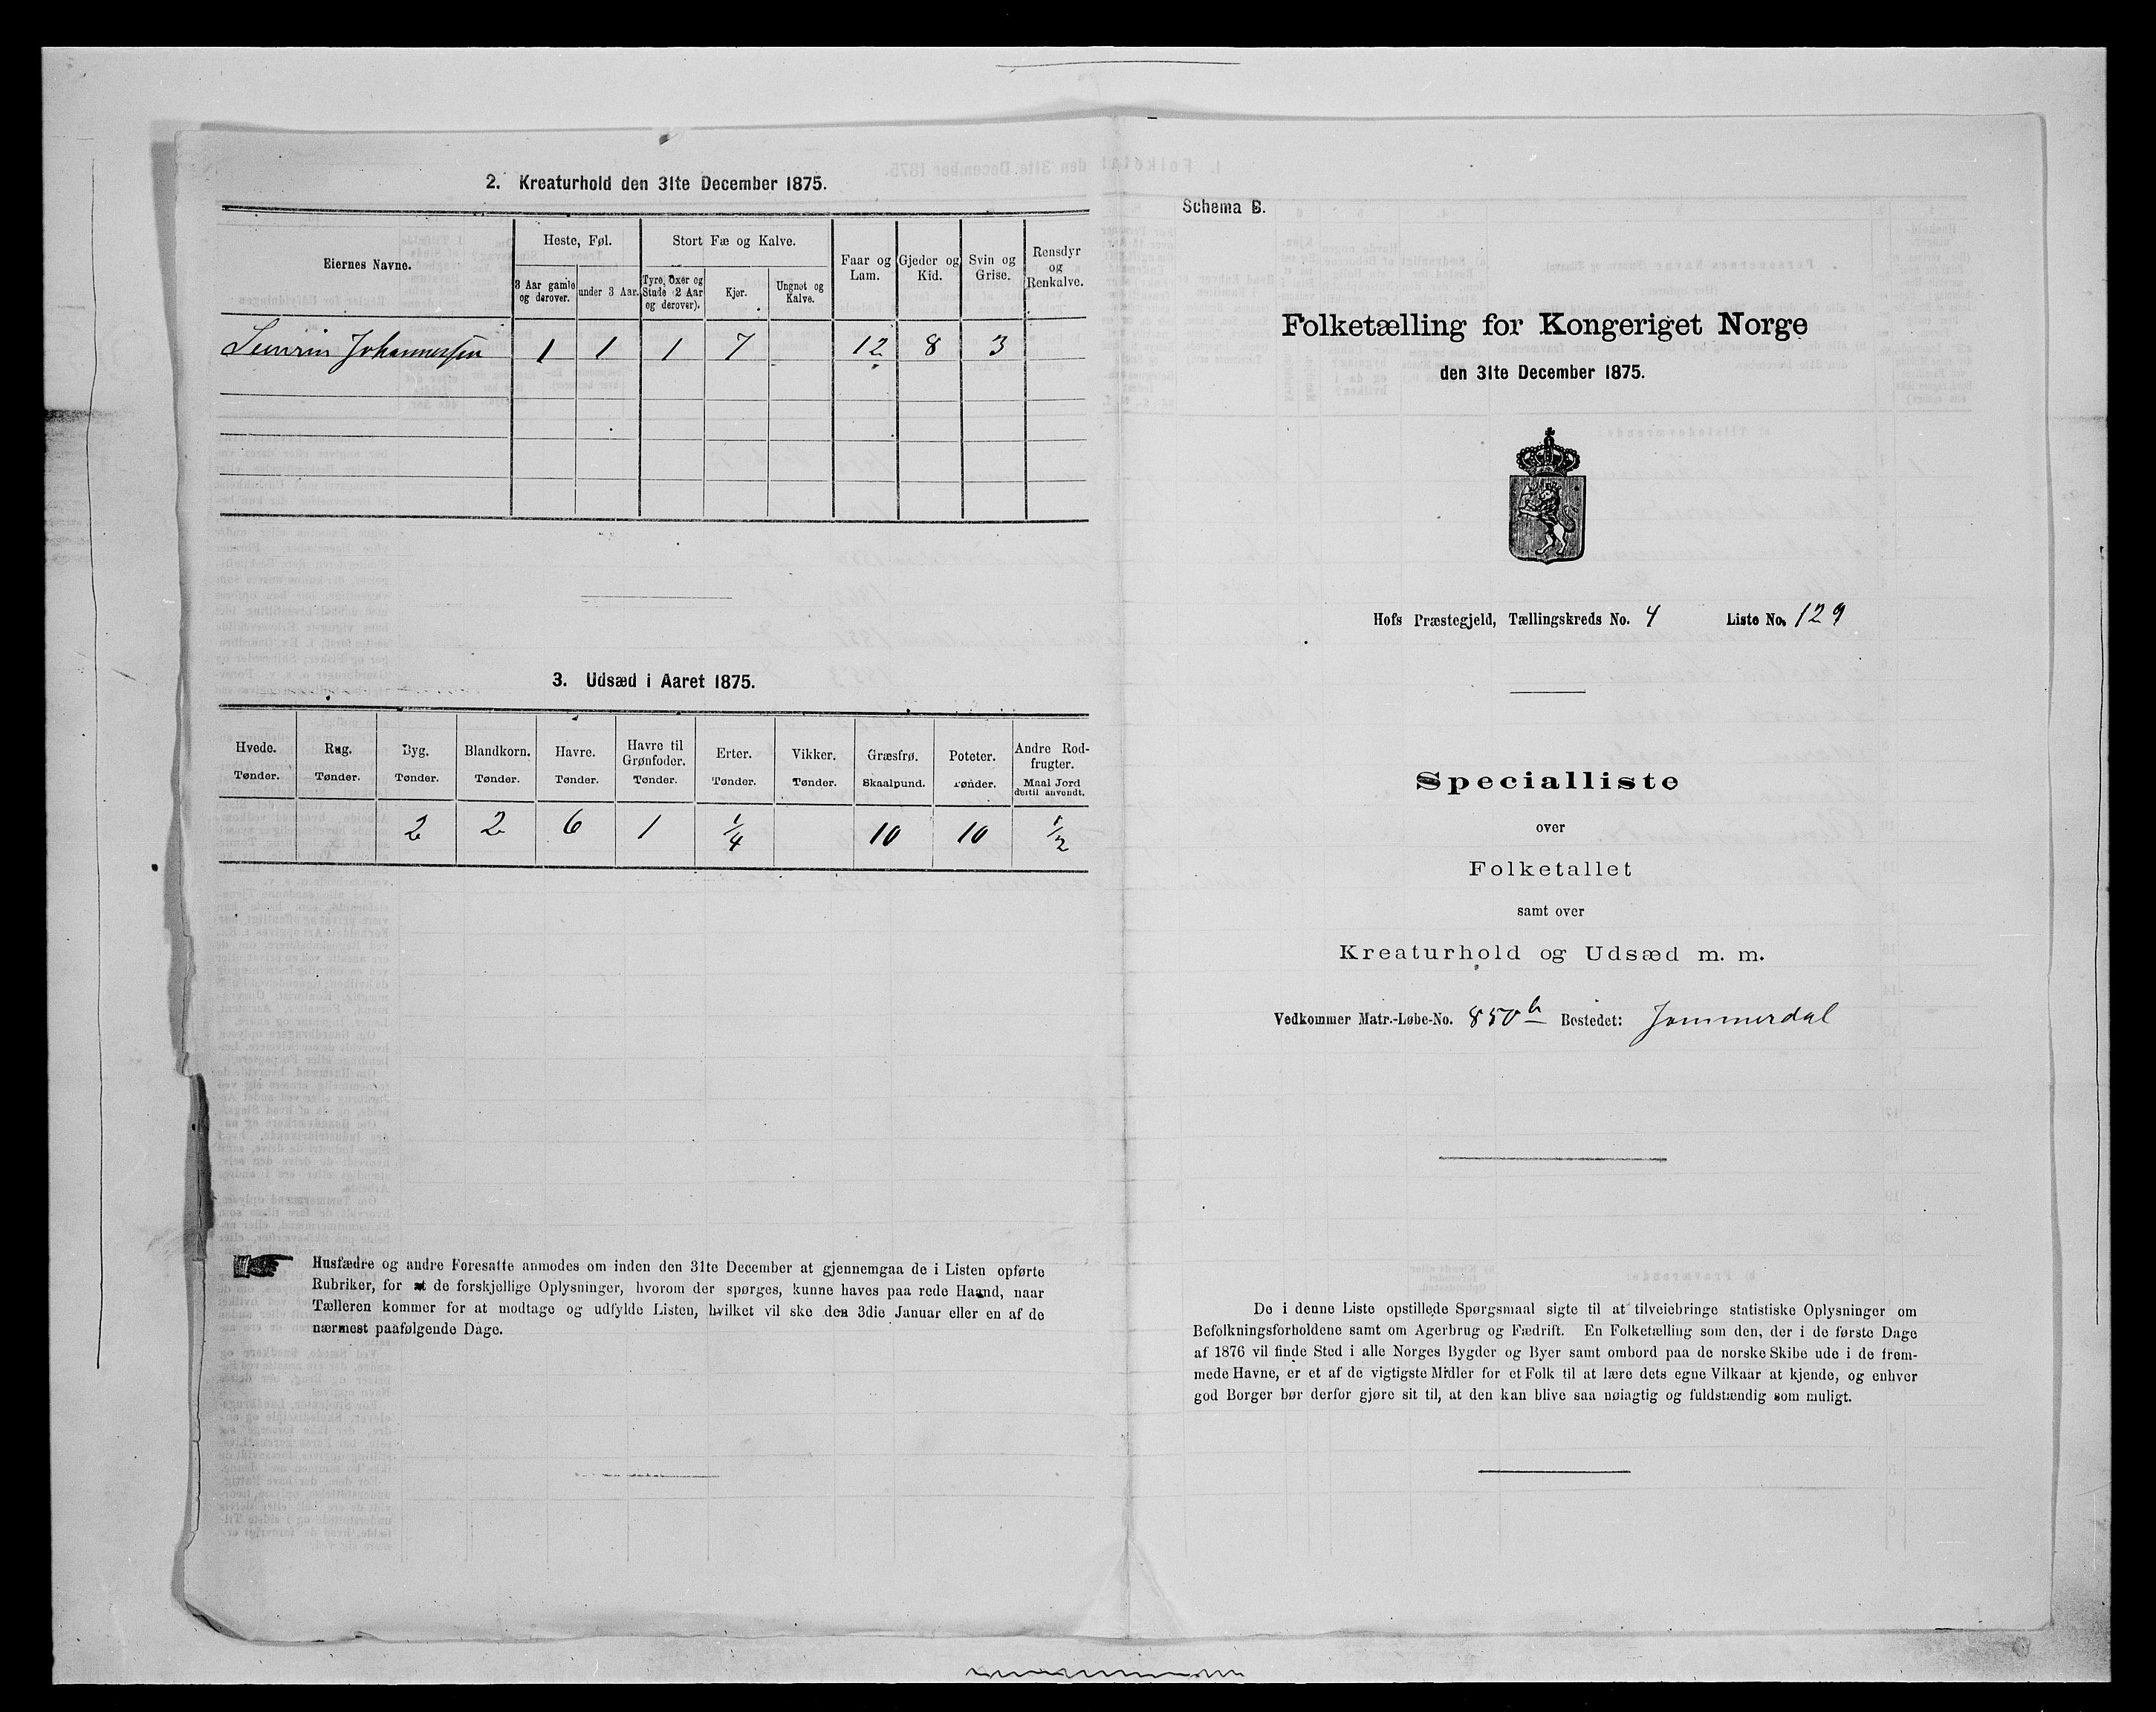 2. Kreaturhold den 31te December 1875.
Eiernes Navne.
Heste, Føl.
Stort Fæ og Kalve.
Faar og Lam.
Gjeder og Kid.
Svin og Grise.
Rensdyr og Renkalve.
3 Aar gamle og derover.
under 3 Aar.
Tyre, Oxer og Stude (2 Aar og derover).
Kjør.
Ungnøt og Kalve.
Johannessen 1 1 1 7 12 8 3
3. Udsæd i Aaret 1875.
Hvede. Rug. Byg. Blandkorn. Havre. Havre til Grønfoder. Erter. Vikker. Græsfrø. Poteter. Andre Rodfrugter.
Tønder. Tønder. Tønder. Tønder. Tønder. Tønder. Tønder. Tønder. Skaalpund. Tønder. Maal Jord dertil anvendt.
2 2 6 1 1/4 10 10 1/2
Husfædre og andre Foresatte anmodes om inden den 31te December at gjennemgaa de i Listen opførte
Rubriker, for at de forskjellige Oplysninger, hvorom der spørges, kunne haves paa rede Haand, naar
Tælleren kommer for at modtage og udfylde Listen, hvilket vil ske den 3die Januar eller en af de
nærmest paafølgende Dage.
Schema B.
Folketælling for Kongeriget Norge
den 31te December 1875.
Hofs Præstegjeld, Tællingskreds No. 4 Liste No. 129
Specialliste
over
Folketallet
samt over
Kreaturhold og Udsæd m. m.
Vedkommer Matr.-Løbe-No. 850b Bostedet: Jammerdal
De i denne Liste opstillede Spørgsmaal sigte til at tilveiebringe statistiske Oplysninger om
Befolkningsforholdene samt om Agerbrug og Fædrift. En Folketælling som den, der i de første Dage
af 1876 vil finde Sted i alle Norges Bygder og Byer samt ombord paa de norske Skibe ude i de frem-
mede Havne, er et af de vigtigste Midler for et Folk til at lære dets egne Vilkaar at kjende, og enhver
god Borger bør derfor gjøre sit til, at den kan blive saa nøiagtig og fuldstændig som muligt.